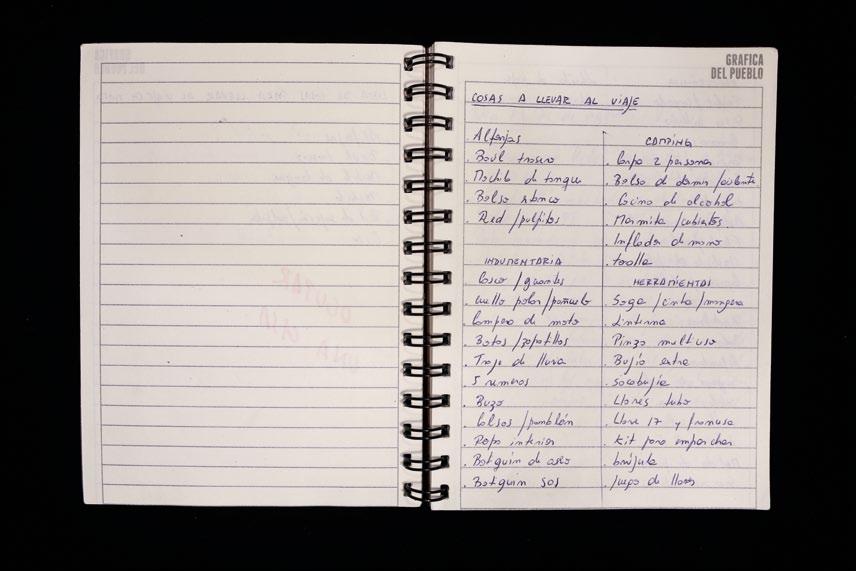 GRAFICA
DEL PUEBLO
COSAS A LLEVAR AL VIAJE
. Alforjas
. Baúl trasero
. Mochila de tanque
. Bolso stanco
. Red / pulpitos
INDUMENTARIA
. Casco / guantes
. cuello polar / pañuelo
. Campera de moto
. Botas / zapatillas
. Traje de lluvia
. 5 remeras
. Buzo
. Calsas / pantalón
. Ropa interior
. Botiquin de aseo
. Botiquin SOS
CAMPING
. Carpa 2 personas
. Bolsa de dormir / aislante
. Cocina de alcohol
. Marmita / cubiertos
. Inflador de mano
. toalla
HERRAMIENTAS
. Soga / cinta / manguera
. Linterna
. Pinza multiuso
. Bujía extra
. sacabujía
. Llaves tubo
. Llave 17 y francesa
. kit para emparchar
. brújula
. juego de llaves